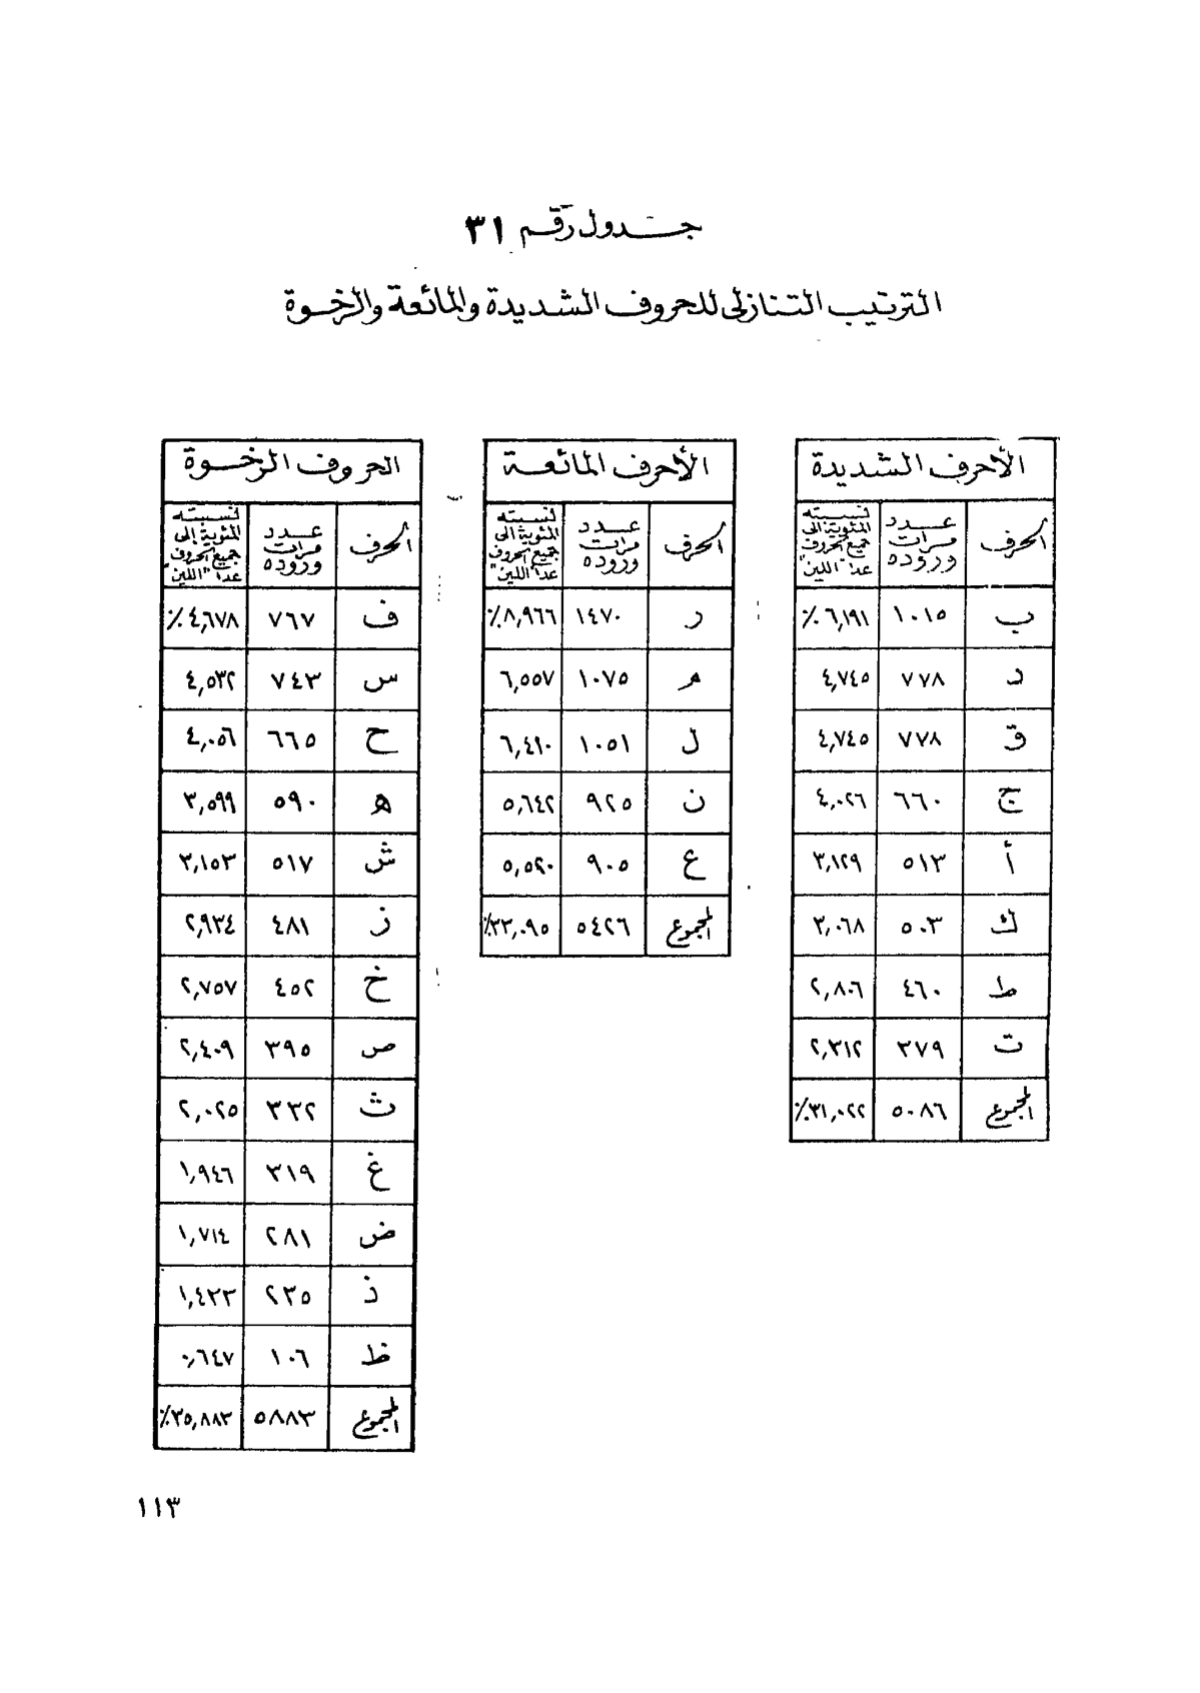 جدول رقم ٣١
الترتيب التنازلى للحروف الشديدة والمائعة والرخوة
الأحرف الشديدة
الحرف | عدد مرات وروده | نسبته المئوية إلى جميع الحروف عدا "اللين"
ب | ١٠١٥ | ٦,١٩١٪
د | ٧٧٨ | ٤,٧٤٥
ق | ٧٧٨ | ٤,٧٤٥
ج | ٦٦٠ | ٤,٠٢٦
أ | ٥١٣ | ٣,١٢٩
ك | ٥٠٣ | ٣,٠٦٨
ط | ٤٦٠ | ٢,٨٠٦
ت | ٣٧٩ | ٢,٣١٢
المجموع | ٥٠٨٦ | ٣١,٠٢٢٪
الأحرف المائعة
الحرف | عدد مرات وروده | نسبته المئوية إلى جميع الحروف عدا "اللين"
ر | ١٤٧٠ | ٨,٩٦٦٪
م | ١٠٧٥ | ٦,٥٥٧
ل | ١٠٥١ | ٦,٤١٠
ن | ٩٢٥ | ٥,٦٤٢
ع | ٩٠٥ | ٥,٥٢٠
المجموع | ٥٤٢٦ | ٣٣,٠٩٥٪
الحروف الرخوة
الحرف | عدد مرات وروده | نسبته المئوية إلى جميع الحروف عدا "اللين"
ف | ٧٦٧ | ٤,٦٧٨٪
س | ٧٤٣ | ٤,٥٣٢
ح | ٦٦٥ | ٤,٠٥٦
ه | ٥٩٠ | ٣,٥٩٩
ش | ٥١٧ | ٣,١٥٣
ز | ٤٨١ | ٢,٩٣٤
خ | ٤٥٢ | ٢,٧٥٧
ص | ٣٩٥ | ٢,٤٠٩
ث | ٣٣٢ | ٢,٠٢٥
غ | ٣١٩ | ١,٩٤٦
ض | ٢٨١ | ١,٧١٤
ذ | ٢٣٥ | ١,٤٣٣
ظ | ١٠٦ | ٠,٦٤٧
المجموع | ٥٨٨٣ | ٣٥,٨٨٣٪
١١٣